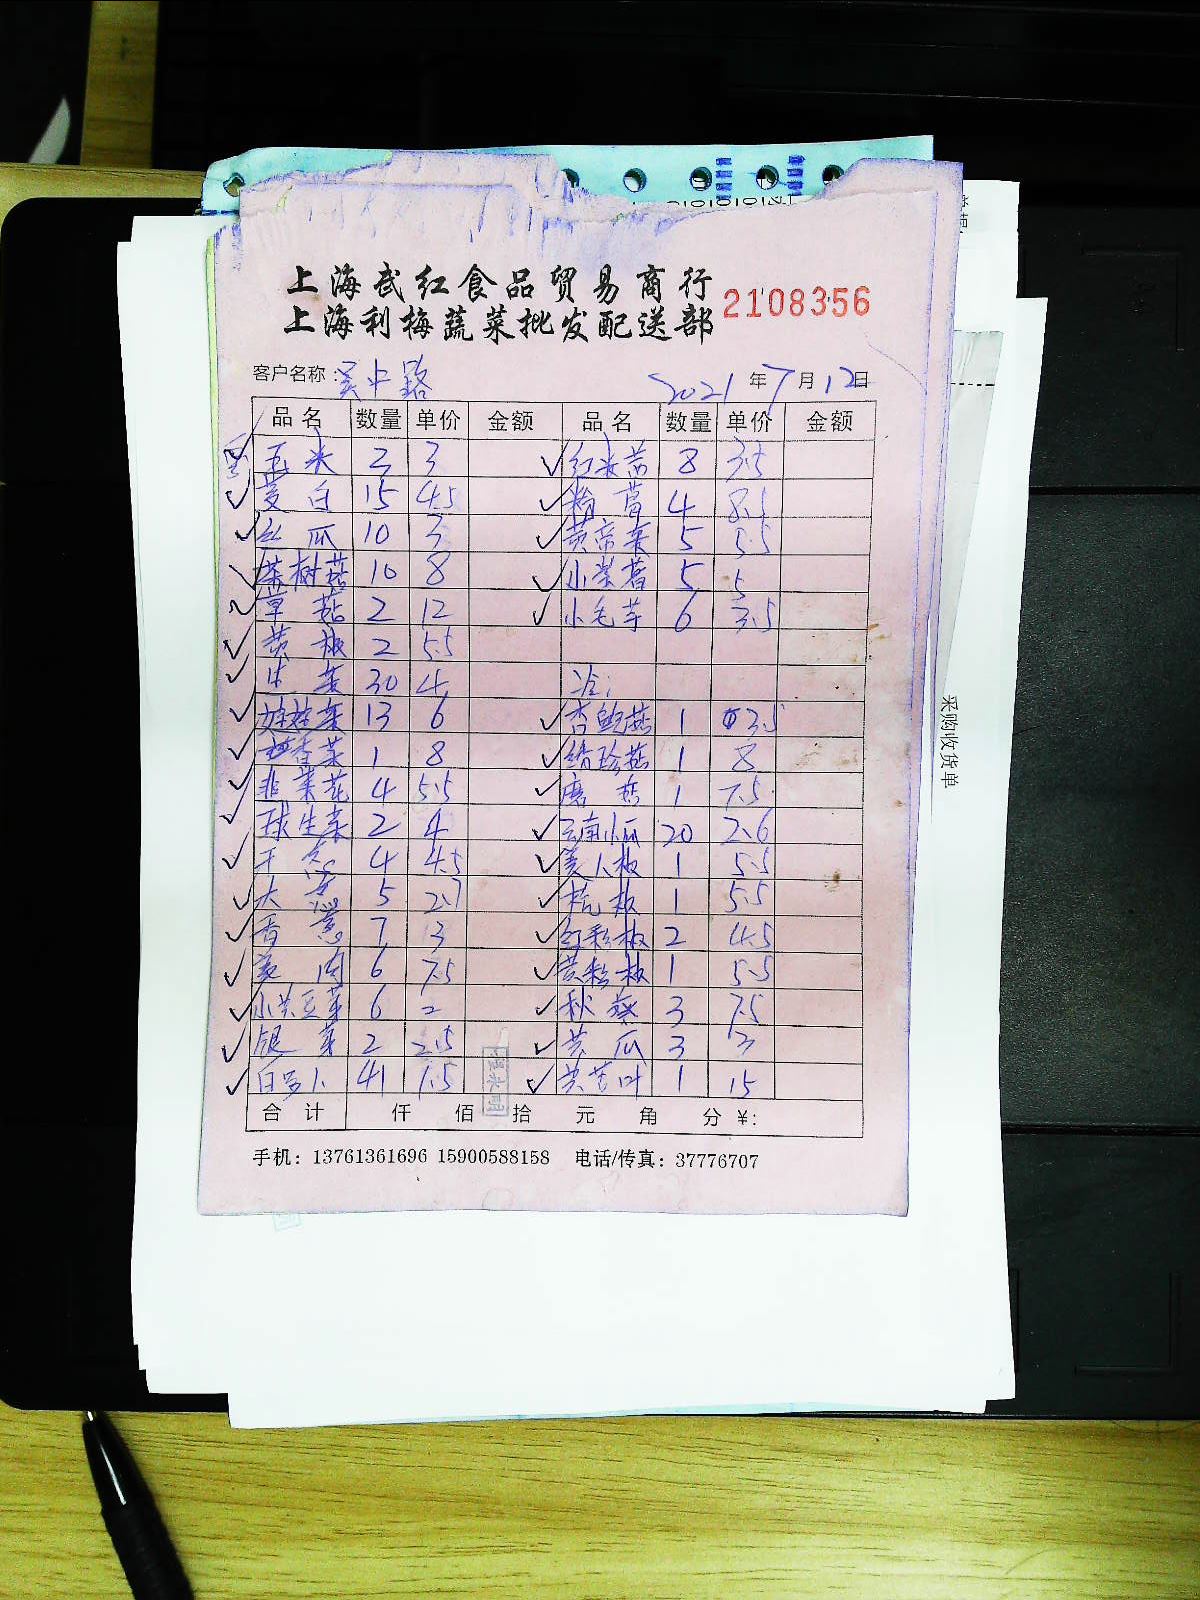 上海武红食品贸易商行
上海利梅蔬菜批发配送部 2108356
客户名称: 吴中路 2021年7月12日
品名 数量 单价 金额 品名 数量 单价 金额
玉米 2 3 红米苋 8 3.5
茭白 15 4.5 粉葛 4 8.5
丝瓜 10 3 黄帝菜 5 5.5
茶树菇 10 8 小紫薯 5 5
草菇 2 12 小毛芋 6 3.5
黄椒 2 5.5
生菜 30 4
娃娃菜 13 6 杏鲍菇 1 3.5
香菜 1 8 珍菇 1 8
韭菜花 4 5.5 菇 1 7.5
球生菜 2 4 云南小瓜 20 2.6
干葱 4 4.5 美人椒 1 5.5
大葱 5 2.7 杭椒 1 5.5
香葱 7 3 红彩椒 2 4.5
姜肉 6 7.5 黄彩椒 1 5.5
小黄豆芽 6 2 秋葵 3 7.5
银芽 2 2.5 黄瓜 3 3
白萝卜 41 1.5 叶 1 15
合计 仟 佰 拾 元 角 分 ¥:
手机: 13761361696 15900588158 电话/传真: 37776707
采购收货单